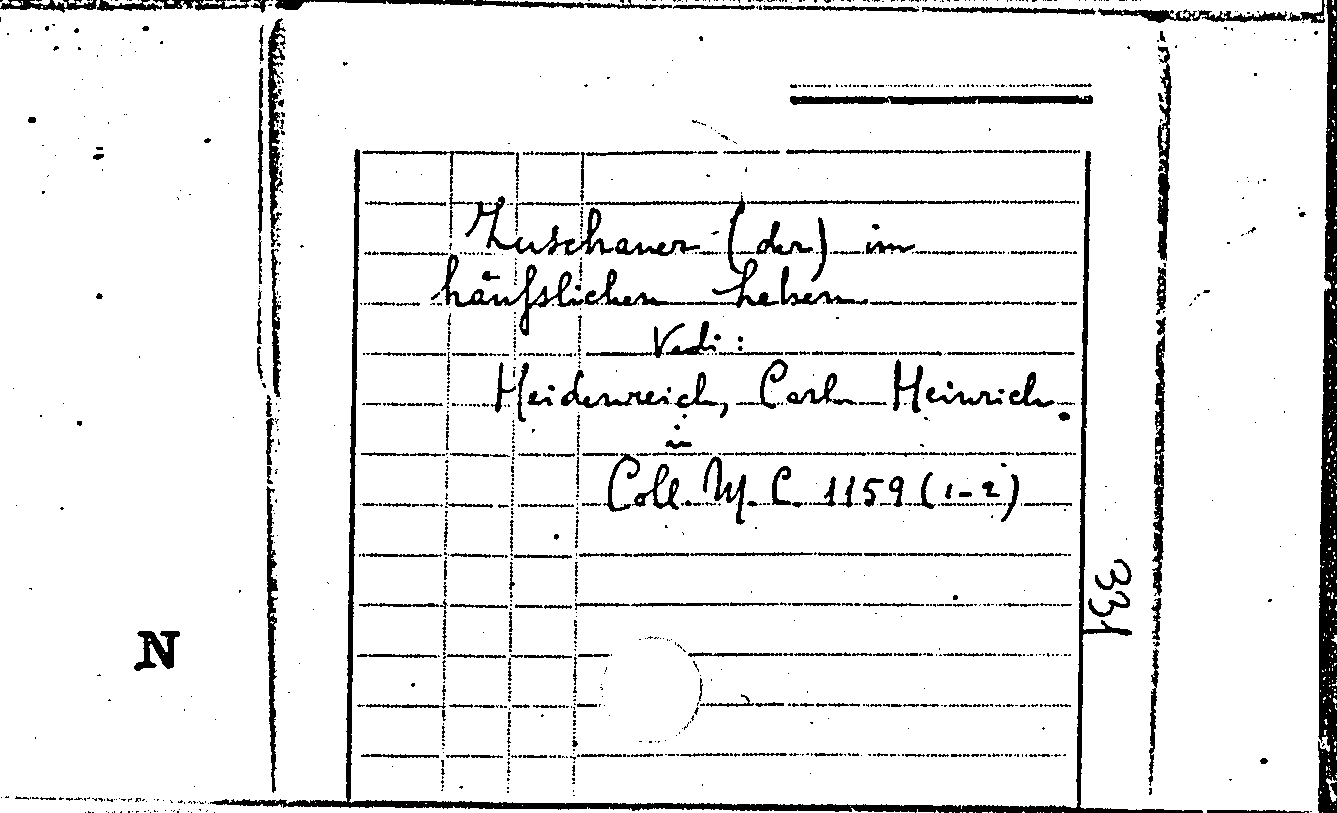 Zuschauer (der) im
häufslichen Leben
Vedi:
Heidenreich, Carl Heinrich.
in
Coll. M. C. 1159 (1-2)
331
N